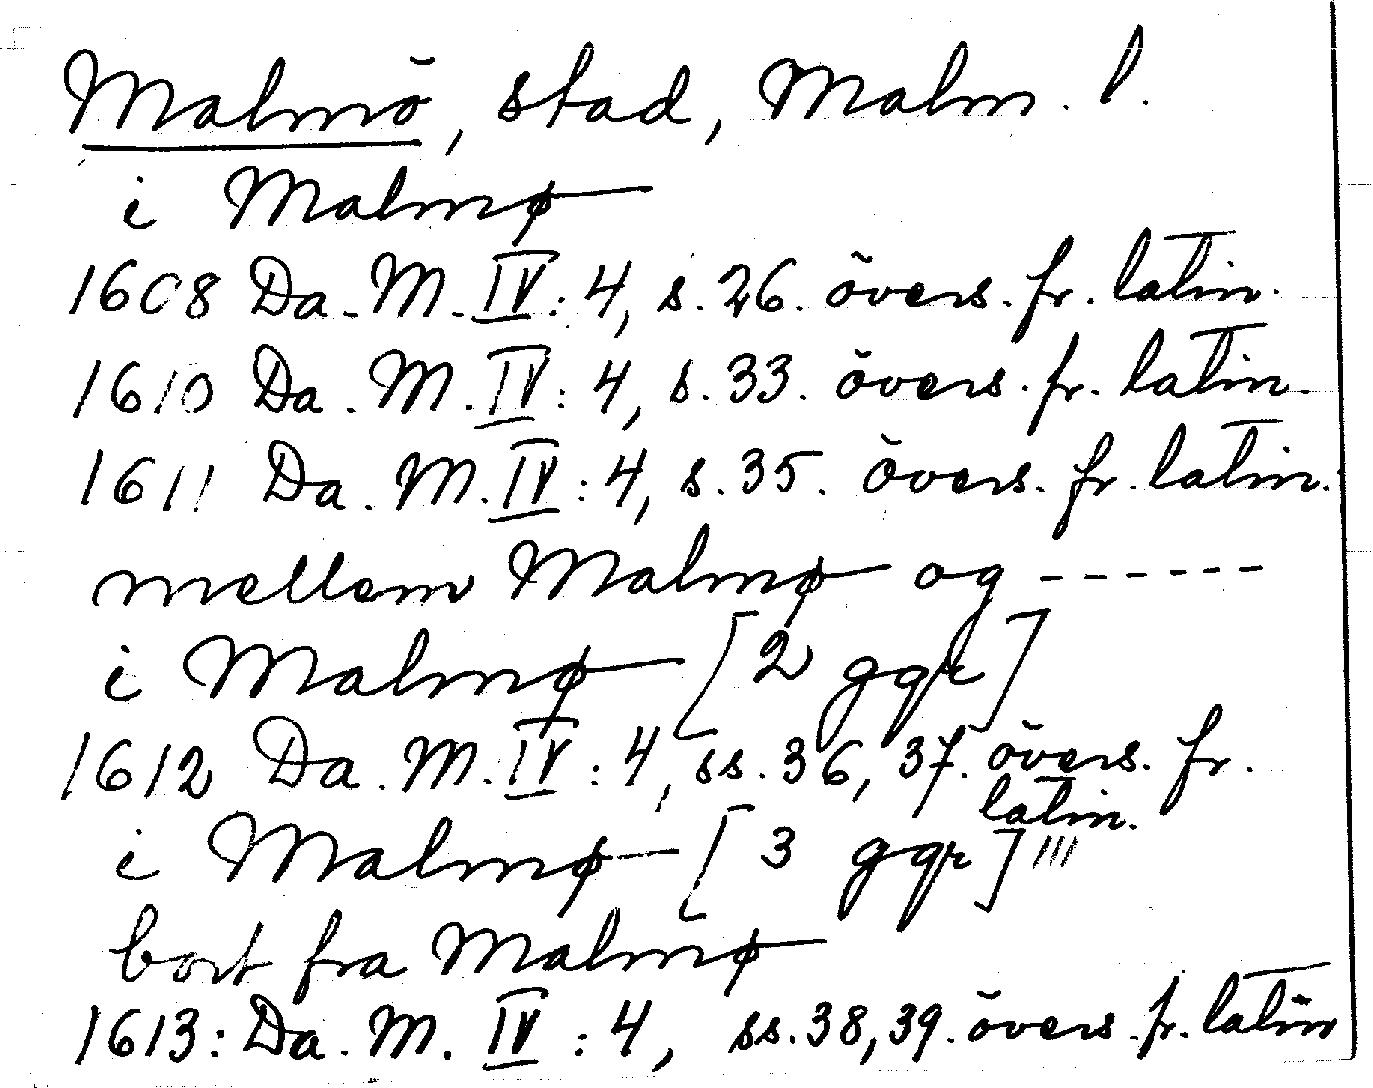 Malmö, stad, Malm. l.
i Malmø
1608 Da. M. IV: 4, s. 26. övers. fr. latin.
1610 Da. M. IV: 4, s. 33. övers. fr. latin.
1611 Da. M. IV: 4, s. 35. övers. fr. latin.
mellem Malmø og ------
i Malmø [2 ggr]
1612 Da. M. IV: 4, ss. 36, 37. övers. fr.
latin.
i Malmø [3 ggr] |||
bort fra Malmø
1613: Da. M. IV: 4, ss. 38, 39. övers. fr. latin